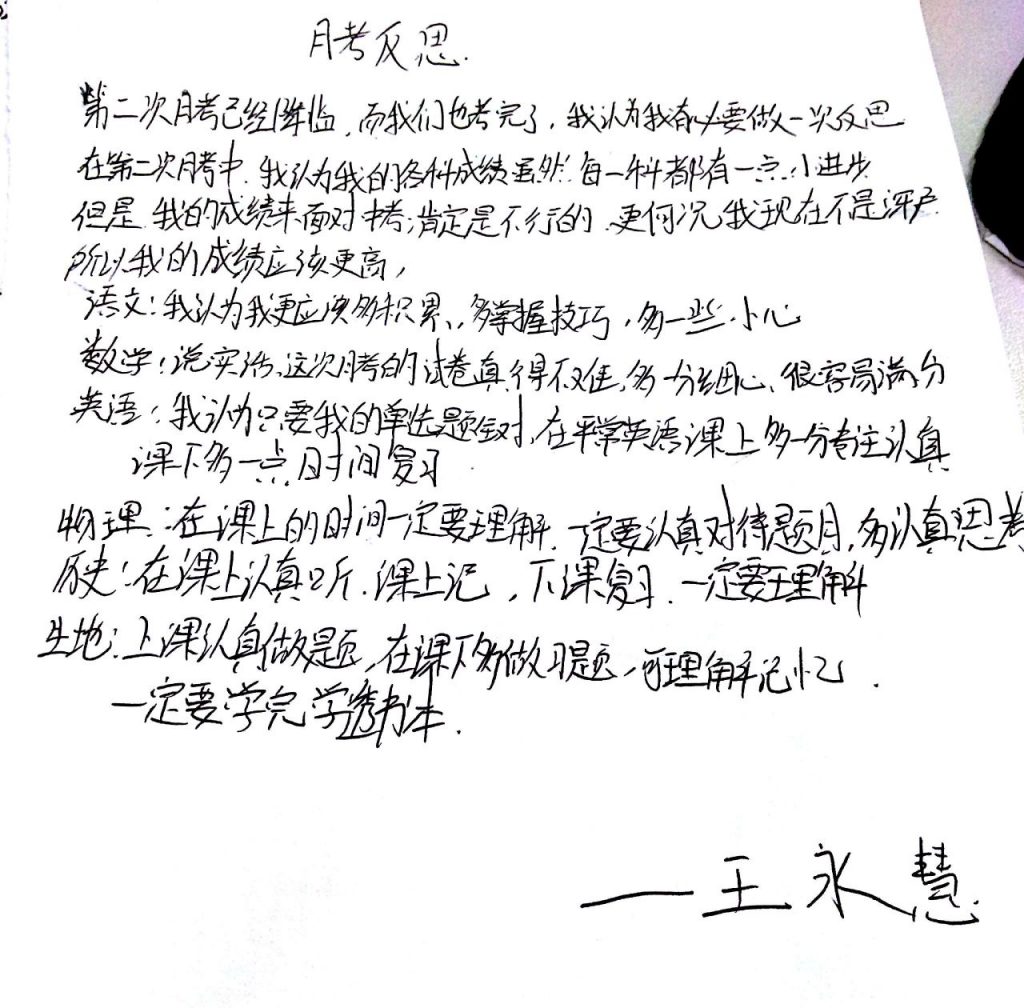 月考反思.
第二次月考已经降临,而我们也考完了,我认为我有必要做一次反思
在第二次月考中,我认为我的各科成绩虽然每一科都有一点小进步
但是,我的成绩来面对中考,肯定是不行的.更何况我现在不是深户
所以我的成绩应该更高,
语文:我认为我更应该多积累,多掌握技巧,多一些小心
数学:说实话,这次月考的试卷真得不难,多一分细心、很容易满分
英语:我认为只要我的单选题全对,在平常英语课上多一分专注认真
课下多一点时间复习.
物理:在课上的时间一定要理解.一定要认真对待题目,多认真思考
历史:在课上认真听.课上记,下课复习.一定要理解
生地:上课认真做题,在课下多做习题,可理解记忆.
一定要学完学透书本.
——王永慧.